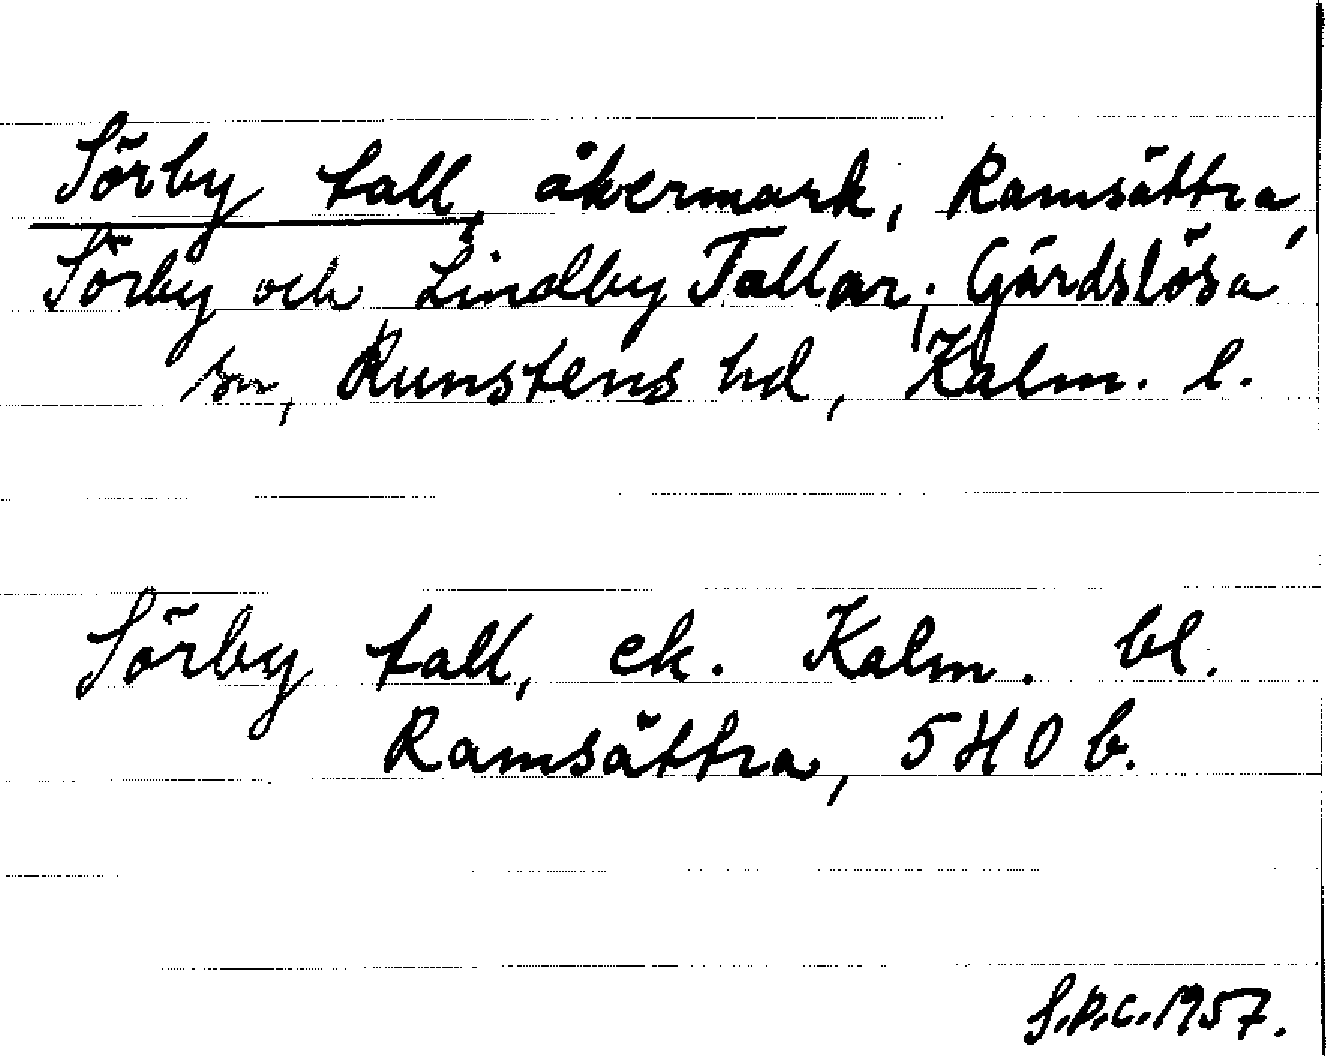 Sörby tall, åkermark, Ramsättra,
Sörby och Lindby Tallar, Gärdslösa
sn, Runstens hd, Kalm. l.
Sörby tall, ek. Kalm. bl.
Ramsättra, 5 H 0 b.
S.P.C. 1957.